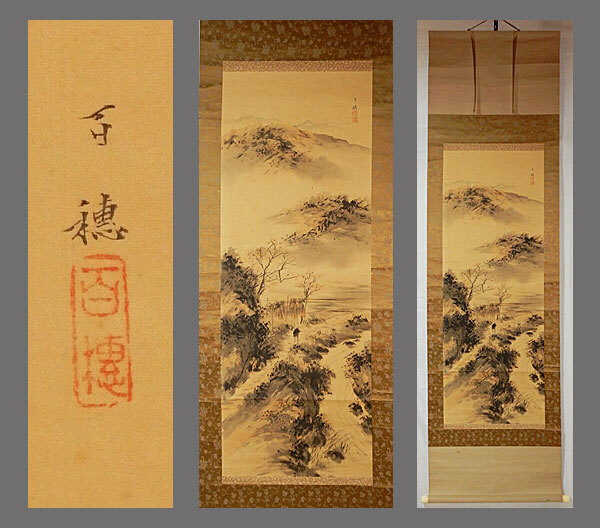 百
穂
百
穂